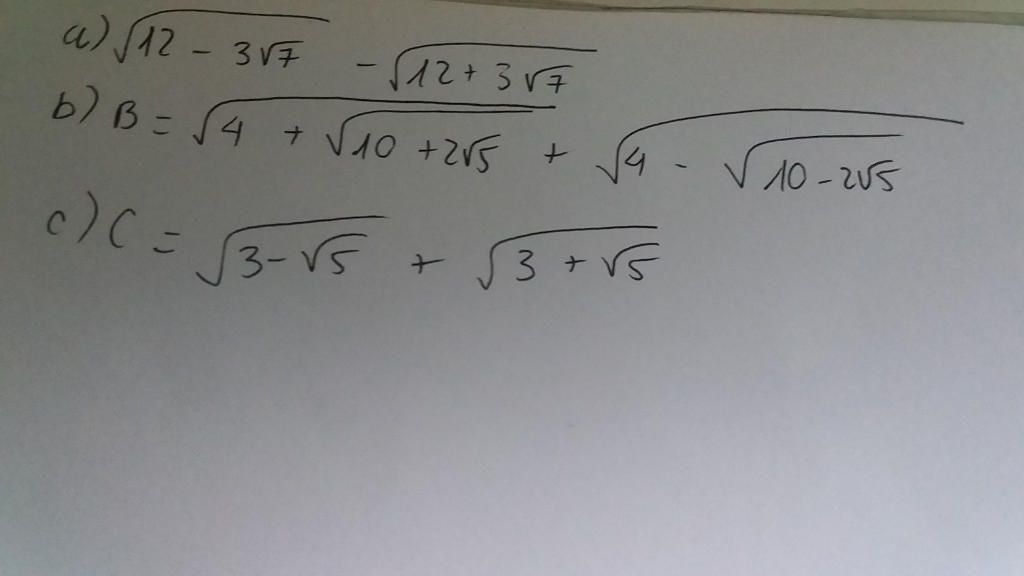 a) √(12 - 3√7) - √(12 + 3√7)
b) B = √(4 + √(10 + 2√5)) + √(4 - √(10 - 2√5))
c) C = √(3 - √5) + √(3 + √5)